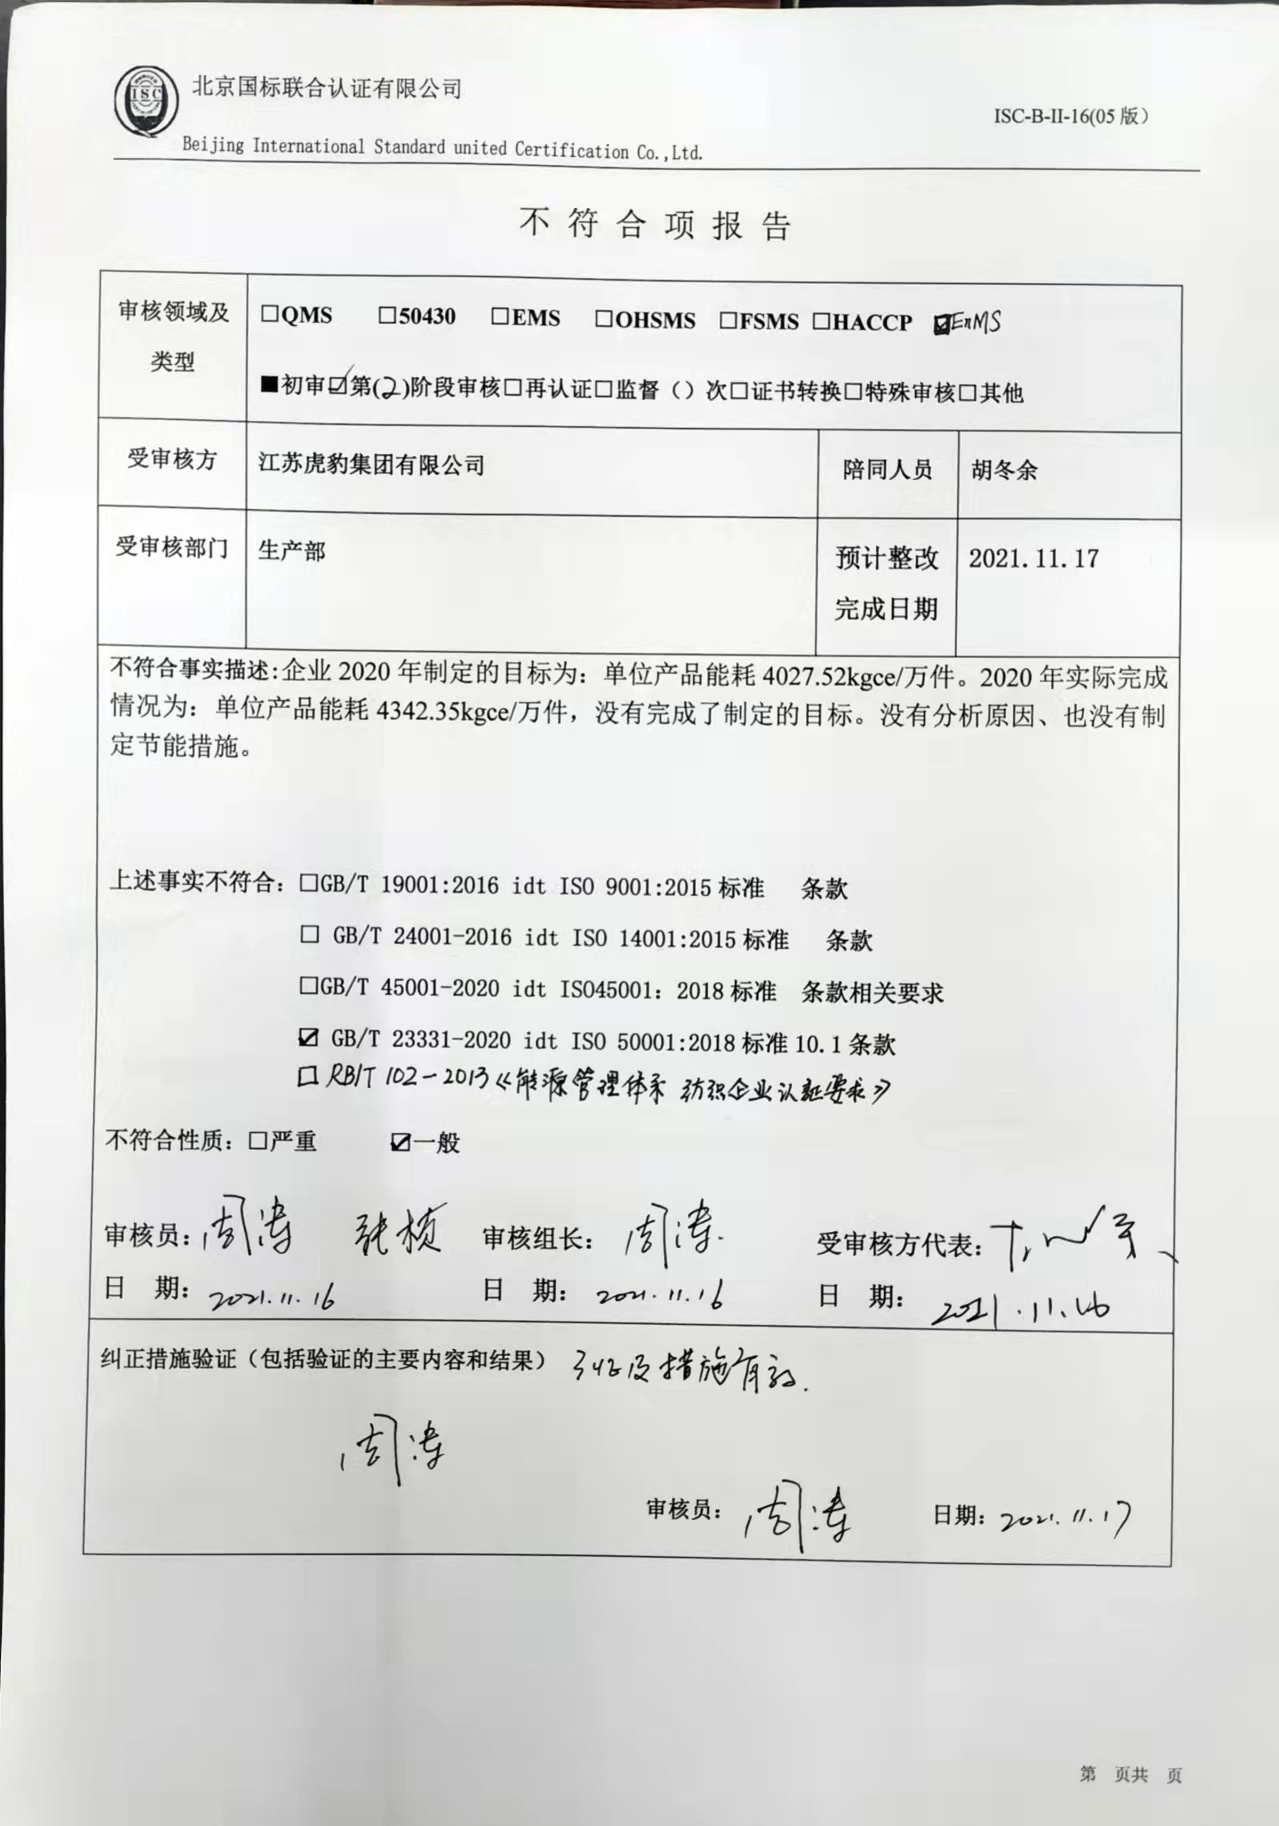 ISC
北京国标联合认证有限公司
ISC-B-II-16(05 版)
Beijing International Standard united Certification Co.,Ltd.
不符合项报告
审核领域及类型
□QMS □50430 □EMS □OHSMS □FSMS □HACCP ☑EnMS
■初审☑第(2)阶段审核□再认证□监督（）次□证书转换□特殊审核□其他
受审核方 江苏虎豹集团有限公司 陪同人员 胡冬余
受审核部门 生产部 预计整改完成日期 2021.11.17
不符合事实描述:企业 2020 年制定的目标为：单位产品能耗 4027.52kgce/万件。2020 年实际完成
情况为：单位产品能耗 4342.35kgce/万件，没有完成了制定的目标。没有分析原因、也没有制
定节能措施。
上述事实不符合：□GB/T 19001:2016 idt ISO 9001:2015 标准 条款
□ GB/T 24001-2016 idt ISO 14001:2015 标准 条款
□GB/T 45001-2020 idt ISO45001：2018 标准 条款相关要求
☑ GB/T 23331-2020 idt ISO 50001:2018 标准 10.1 条款
□ RB/T 102-2013《能源管理体系 纺织企业认证要求》
不符合性质：□严重 ☑一般
审核员：周涛 张桢 审核组长：周涛 受审核方代表：
日 期：2021.11.16 日 期：2021.11.16 日 期：2021.11.16
纠正措施验证（包括验证的主要内容和结果） 措施有效.
周涛
审核员：周涛 日期：2021.11.17
第 页共 页